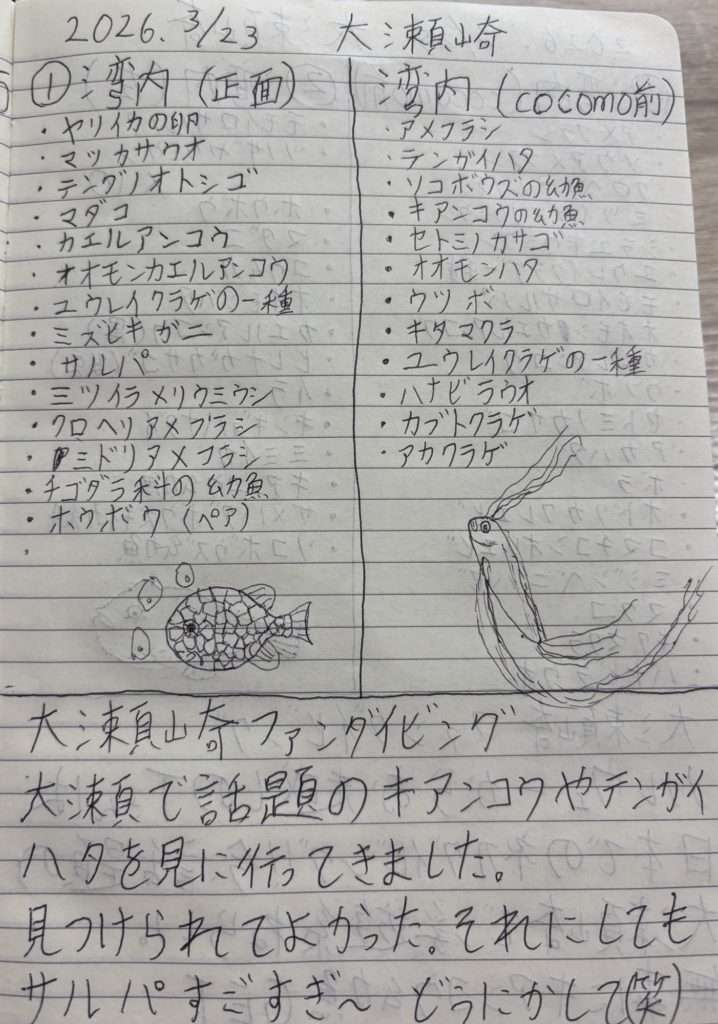 2026. 3/23 大瀬崎
① 湾内 (正面)
・ヤリイカの卵
・マツカサウオ
・テングノオトシゴ
・マダコ
・カエルアンコウ
・オオモンカエルアンコウ
・ユウレイクラゲの一種
・ミズヒキガニ
・サルパ
・ミツイラメリウミウシ
・クロヘリアメフラシ
・ミドリアメフラシ
・チゴダラ科の幼魚
・ホウボウ (ペア)
・
湾内 (cocomo前)
・アメフラシ
・テンガイハタ
・ソコボウズの幼魚
・キアンコウの幼魚
・セトミノカサゴ
・オオモンハタ
・ウツボ
・キタマクラ
・ユウレイクラゲの一種
・ハナビラウオ
・カブトクラゲ
・アカクラゲ
大瀬崎ファンダイビング
大瀬で話題のキアンコウやテンガイ
ハタを見に行ってきました。
見つけられてよかった。それにしても
サルパすごすぎ〜 どうにかして(笑)